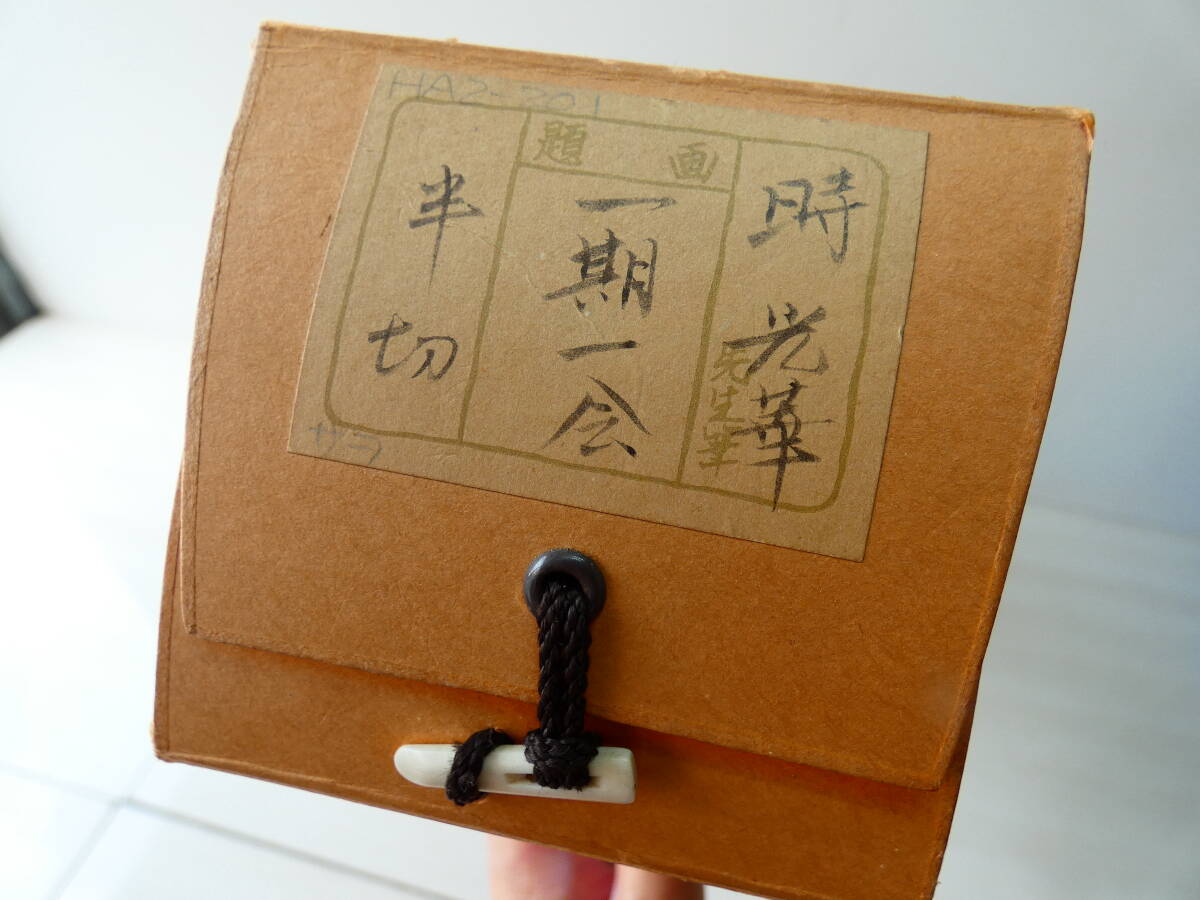 HA2-201
時光華
先生筆
画題
一期一会
半切
サラ